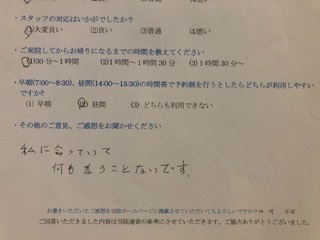 ・スタッフの対応はいかがでしたか?
(1)大変良い (2)良い (3)普通 (4)悪い
・ご来院してからお帰りになるまでの時間を教えてください
(1)30分~1時間 (2)1時間~1時間30分 (3)1時間30分~
・早朝(7:00~8:30)、昼間(14:00~15:30)の時間帯で予約制を行うとしたらどちらが利用しやすいですか?
(1) 早朝 (2) 昼間 (3) どちらも利用できない
・その他のご意見、ご感想をお聞かせください
私に合っていて
何も言うことないです。
お書きいただいたご感想を当院ホームページに掲載させていただいてもよろしいですか?→ 可 不可
ご回答いただきました内容は当院運営の参考にさせていただきます。ご協力ありがとうございました。